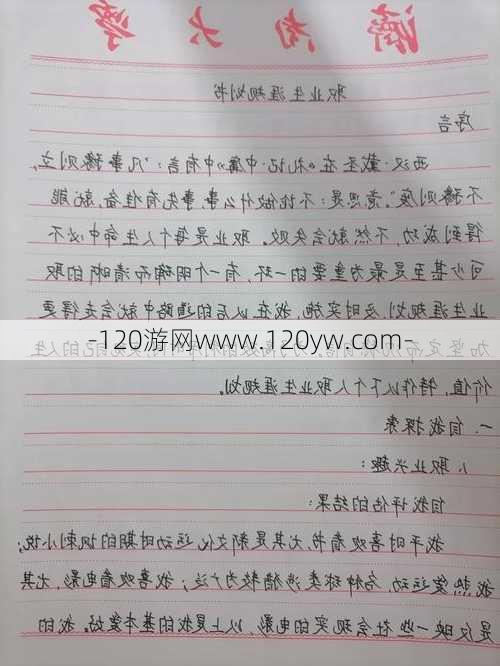 职业生涯规划书
序言
西汉·戴圣在《礼记·中庸》中有言:“凡事豫则立,
不豫则废。”意思是:不论做什么事,事先有准备,就能
得到成功,不然就会失败。职业是每个人生命中必不
可少甚至是最为重要的一环,有一个明确而清晰的职
业生涯规划,及时实施,我在以后的道路中就会走得更
为坚定 自己的人生
-120游网www.120yw.com-
价值,特作以下个人职业生涯规划。
一、自我探索
1、职业兴趣:
自我评估的结果:
我平时喜欢看书尤其是新文化运动时期的讽刺小说;
我热爱运动,各种球类涉猎较为广泛;我喜欢看电影,尤其
是反映一些社会现实的电影,以上是我的基本爱好。我的